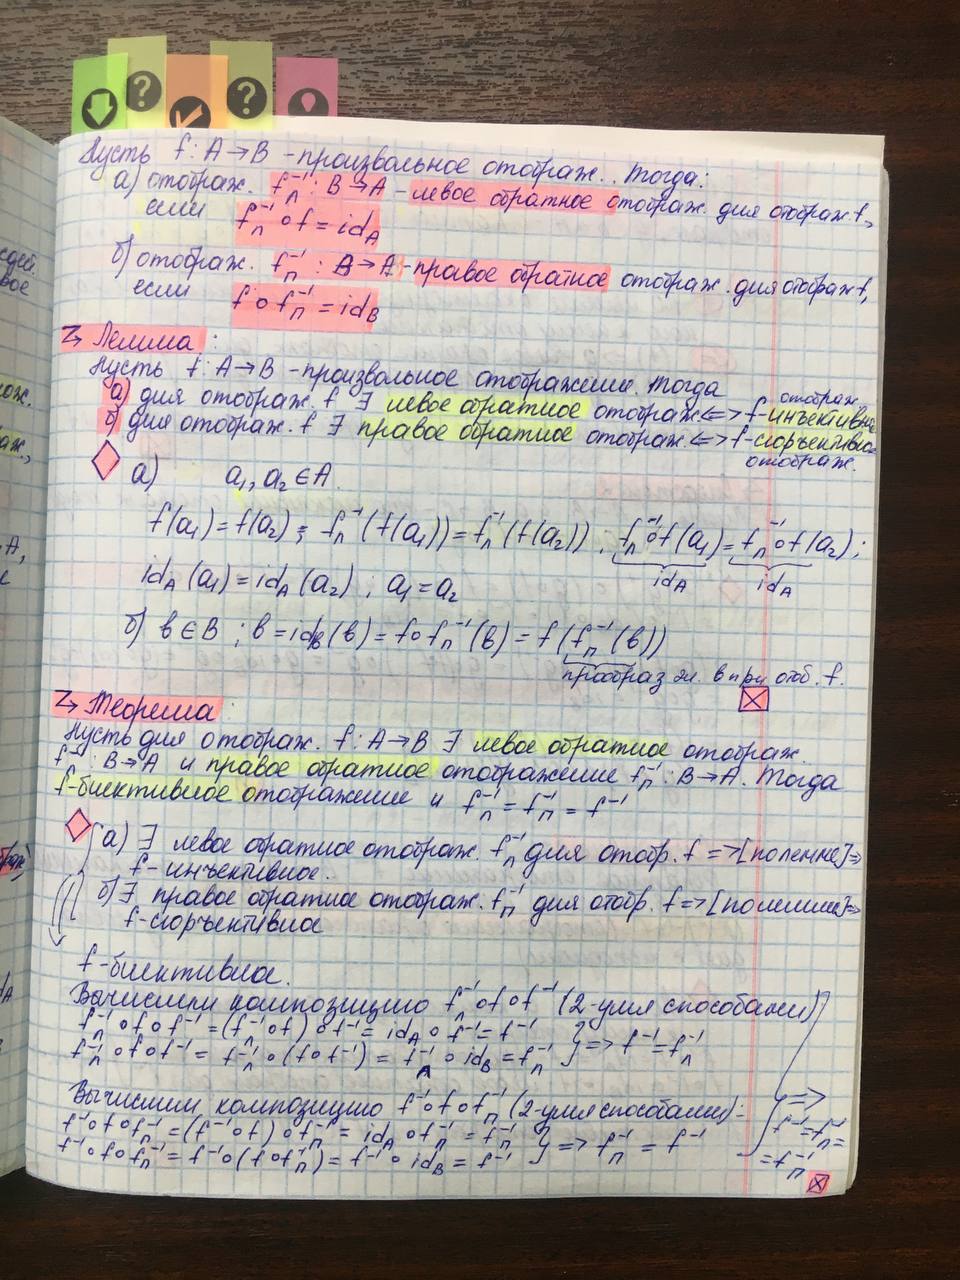 Пусть f: A→B - произвольное отображ. Тогда:
а) отображ. fл⁻¹: B→A - левое обратное отображ. для отображ. f,
если fл⁻¹∘f = idA
б) отображ. fп⁻¹: B→A - правое обратное отображ. для отображ f,
если f∘fп⁻¹ = idB
Лемма:
Пусть f: A→B - произвольное отображение. Тогда
а) для отображ. f ∃ левое обратное отображ. <=> f-инъективное отображ.
б) для отображ. f ∃ правое обратное отображ. <=> f-сюръективное
отображ.
а) a₁, a₂ ∈ A
f(a₁) = f(a₂); fл⁻¹(f(a₁)) = fл⁻¹(f(a₂)), fл⁻¹∘f(a₁) = fл⁻¹∘f(a₂);
idA idA
idA(a₁) = idA(a₂); a₁ = a₂
б) в ∈ B; в = idB(в) = f∘fп⁻¹(в) = f(fп⁻¹(в))
прообраз эл. в при отоб. f.
Теорема:
Пусть для отображ. f: A→B ∃ левое обратное отображ.
f⁻¹: B→A и правое обратное отображение fп⁻¹: B→A. Тогда
f-биективное отображение и fл⁻¹ = fп⁻¹ = f⁻¹
а) ∃ левое обратное отображ. fл⁻¹ для отобр. f => [по лемме] =>
f-инъективное.
б) ∃ правое обратное отображ. fп⁻¹ для отобр. f => [по лемме] =>
f-сюръективное
f-биективное.
Вычислим композицию fл⁻¹∘f∘f⁻¹ (2-умя способами)
fл⁻¹∘f∘f⁻¹ = (fл⁻¹∘f)∘f⁻¹ = idA∘f⁻¹ = f⁻¹
fл⁻¹∘f∘f⁻¹ = fл⁻¹∘(f∘f⁻¹) = fл⁻¹∘idB = fл⁻¹ } => f⁻¹ = fл⁻¹
Вычислим композицию f⁻¹∘f∘fп⁻¹ (2-умя способами): } =>
f⁻¹∘f∘fп⁻¹ = (f⁻¹∘f)∘fп⁻¹ = idA∘fп⁻¹ = fп⁻¹ } => fп⁻¹ = f⁻¹ f⁻¹ = fл⁻¹ =
f⁻¹∘f∘fп⁻¹ = f⁻¹∘(f∘fп⁻¹) = f⁻¹∘idB = f⁻¹ = fп⁻¹